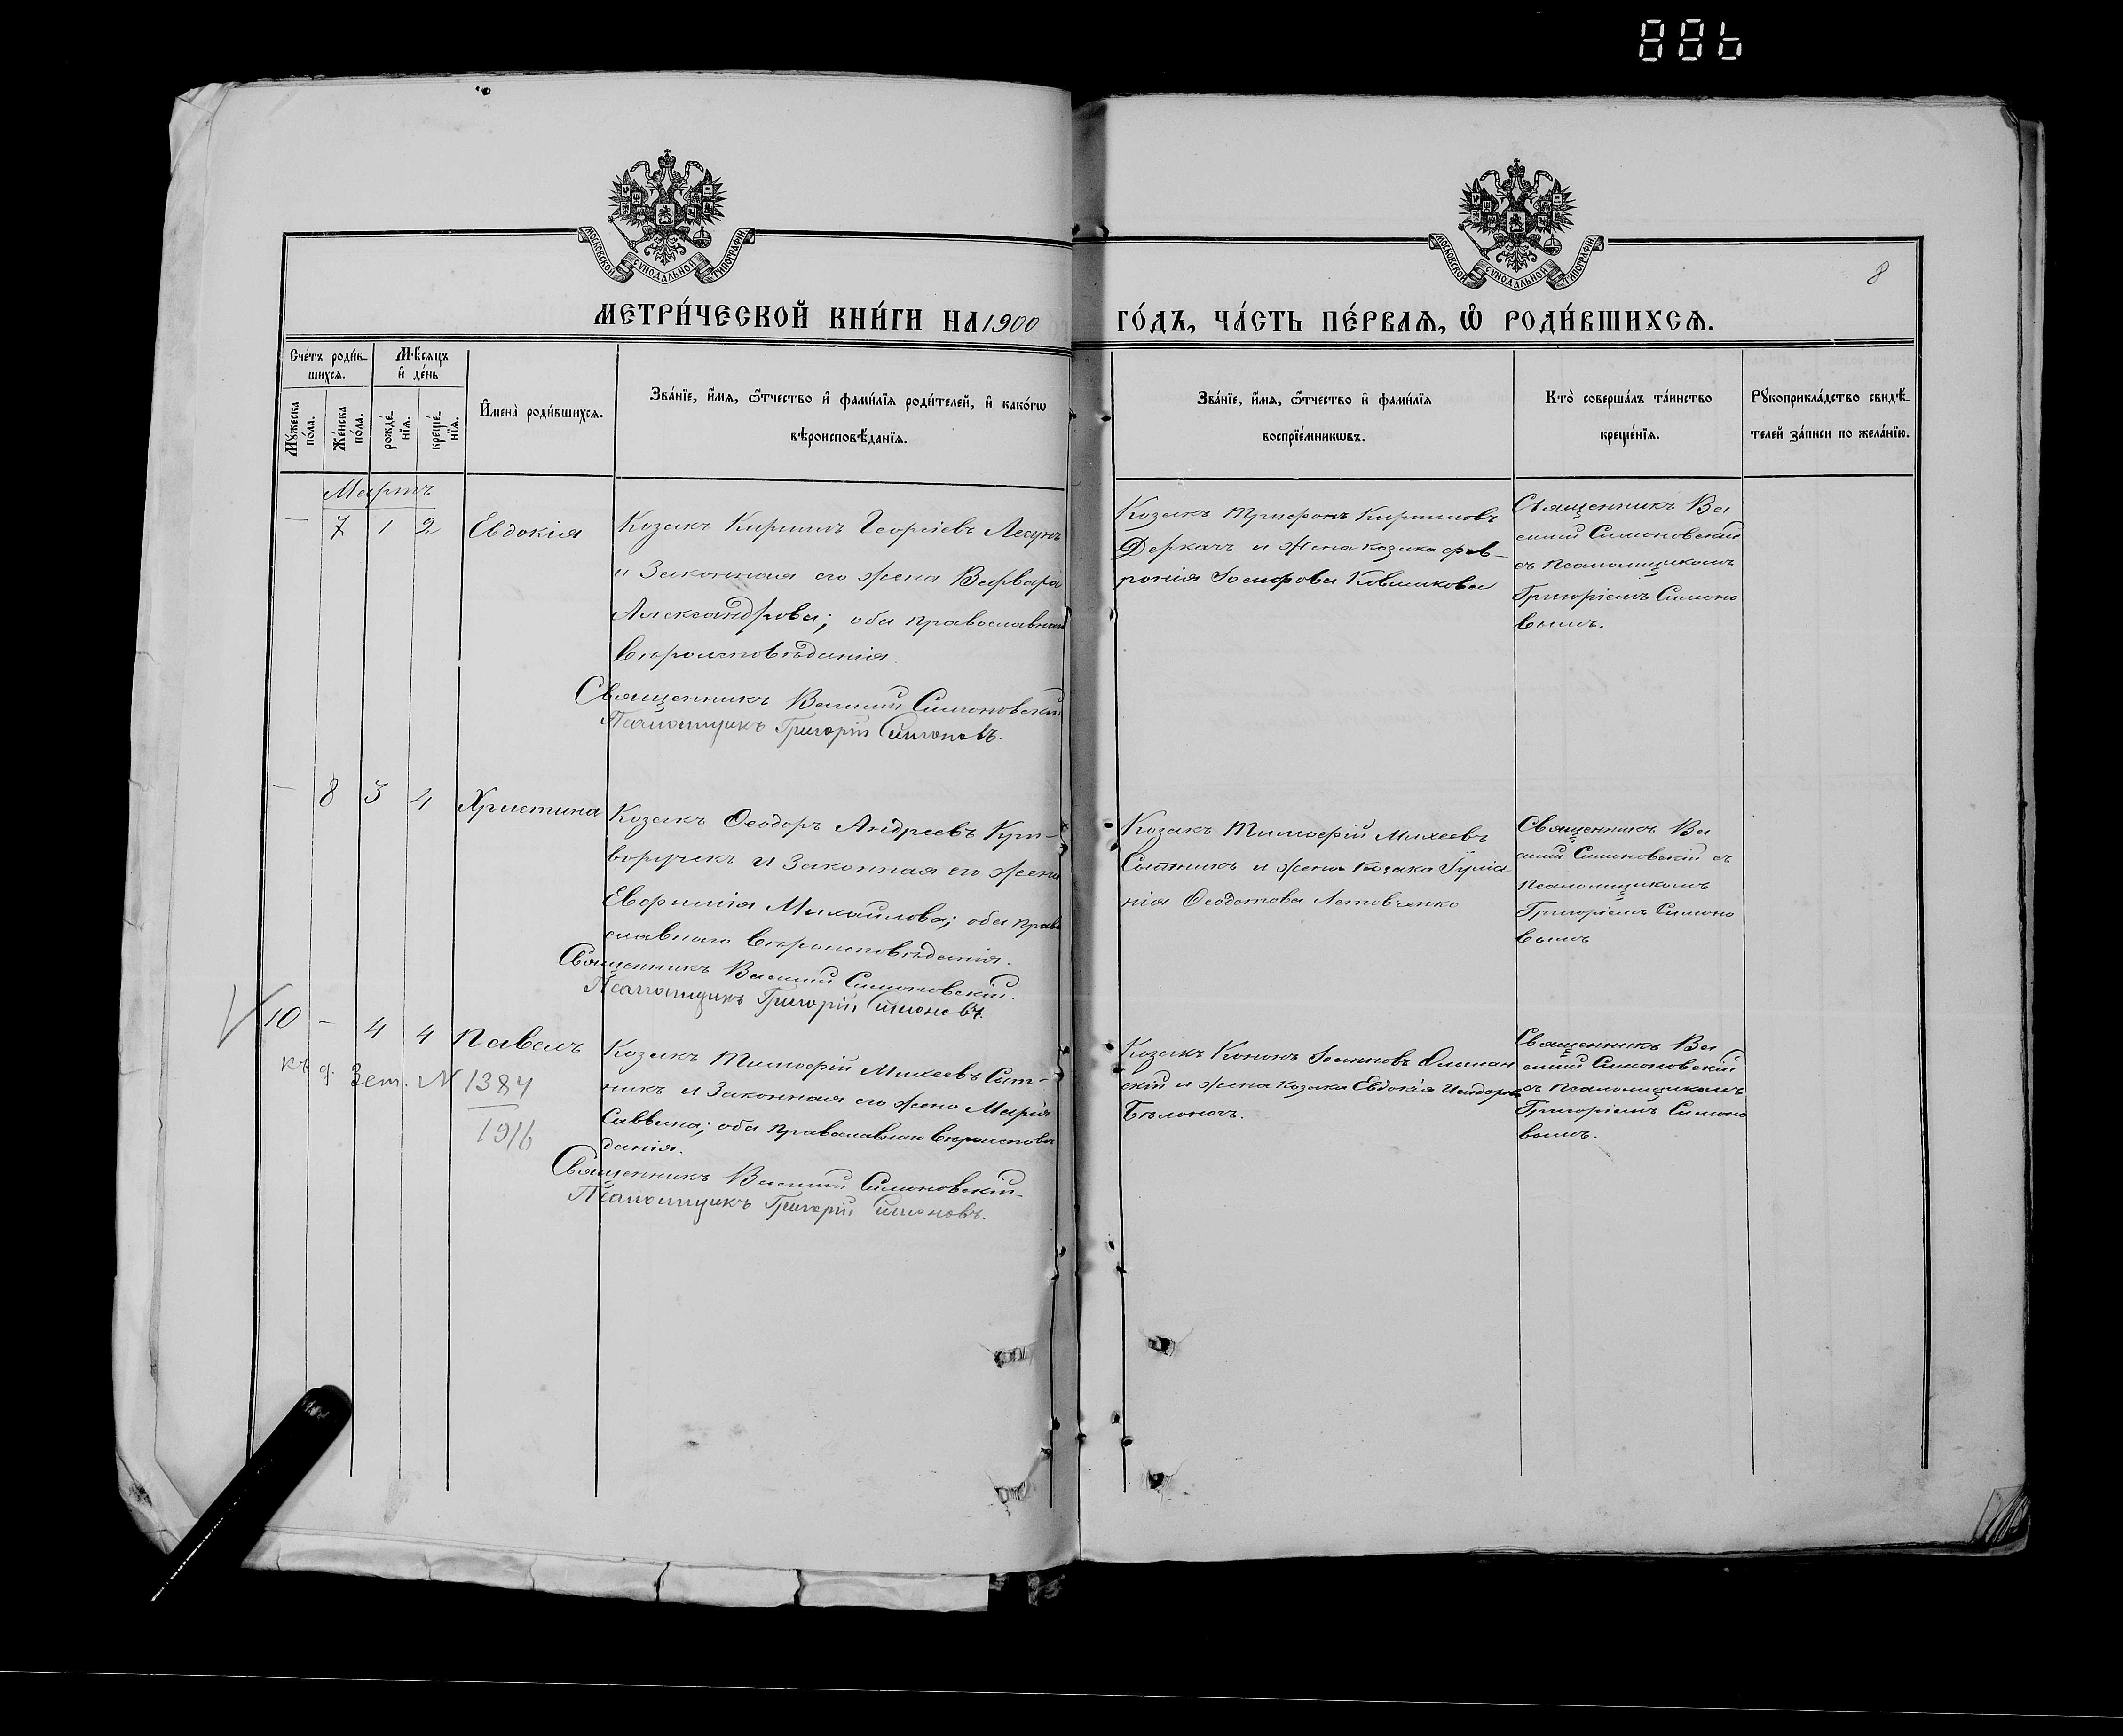 886
МОСКОВСКОЙ СУНОДАЛЬНОЙ ТИПОГРАФІИ
МОСКОВСКОЙ СУНОДАЛЬНОЙ ТИПОГРАФІИ
8
МЕТРИ́ЧЕСКОЙ КНИ́ГИ НА 1900 ГО́ДЪ, ЧА́СТЬ ПЕ́РВАѦ, Ѡ҆ РОДИ́ВШИХСѦ.
Сче́тъ роди́в-
шихсѧ.
Мѣ́сѧцъ
и҆ де́нь
Мꙋ́жеска
по́ла.
Же́нска
по́ла.
рожде́-
нїѧ.
креще́-
нїѧ.
И҆мена̀ роди́вшихсѧ.
Зва́нїе, и҆́мѧ, ѻ҆́тчество и҆ фами́лїѧ роди́телей, и҆ како́гѡ
вѣроисповѣ́данїѧ.
Зва́нїе, и҆́мѧ, ѻ҆́тчество и҆ фами́лїѧ
воспрїе́мникѡвъ.
Кто̀ соверша́лъ та́инство
креще́нїѧ.
Рꙋкоприкла́дство свидѣ́-
телей за́писи по жела́нїю.
Мартъ
— 7 1 2 Евдокія
Козакъ Кириллъ Георгіевъ Лесунъ
и Законная его жена Варвара
Александрова; оба православнаго
вѣроисповѣданія.
Священникъ Василій Симоновскій
Псаломщикъ Григорій Симоновъ.
Козакъ Трифонъ Кирилловъ
Деркачъ и жена козака Фев-
ронія Іосифова Ковшикова
Священникъ Ва
силій Симоновскій
съ псаломщикомъ
Григоріемъ Симоно
вымъ.
— 8 3 4 Христина
Козакъ Ѳеодоръ Андреевъ Кри-
воручекъ и Законная его жена
Евфимія Михайлова; оба право
славнаго вѣроисповѣданія.
Священникъ Василій Симоновскій.
Псаломщикъ Григорій Симоновъ.
Козакъ Тимофій Михеевъ
Сытникъ и жена козака Іуліа
нія Ѳеодотова Летовченко
Священникъ Ва
силій Симоновскій съ
псаломщикомъ
Григоріемъ Симоно
вымъ
10 — 4 4 Павелъ
къ д. Зет. N 1384
1916
Козакъ Тимофій Михеевъ Сыт-
никъ и Законная его жена Марія
Саввина; оба православнаго вѣроисповѣ
данія.
Священникъ Василій Симоновскій.
Псаломщикъ Григорій Симоновъ.
Козакъ Кононъ
скій и жена козака Евдокія Исидорова
Бѣлоночъ.
Священникъ Ва
силій Симоновскій
съ псаломщикомъ
Григоріемъ Симоно
вымъ.